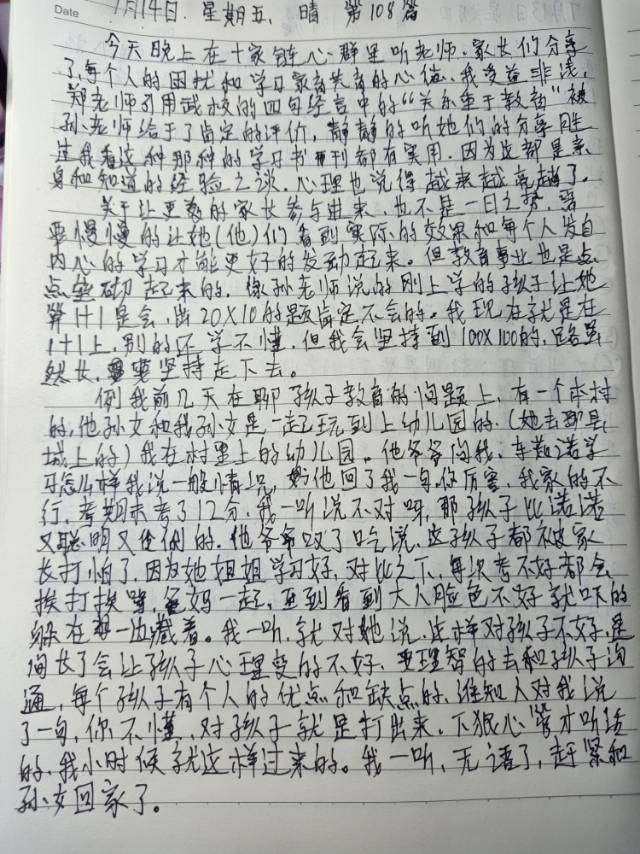 Date 7月14日. 星期五. 晴 第108篇
今天晚上在十家链心群里听老师.家长们分享
了每个人的困扰和学习家育共育的心得.我受益非浅,
郑老师引用武校的四句经言中的“关系重于教育”被
孙老师给于了肯定的评价,静静的听她们的分享胜
过我看这种那种的学习书刊都有实用.因为这都是亲
身和知道的经验之谈.心理也说得越来越亮趟了.
关于让更多的家长参与进来.也不是一日之势.需
要慢慢的让她(他)们看到实际的效果和每个人发自
内心的学习才能更好的发动起来。但教育事业也是点
点垒砌起来的.像孙老师说的刚上学的孩子让她
算1+1是会,出20X10的题肯定不会的.我现在就是在
1+1上.别的还学不懂.但我会坚持到100X100的.路虽
然长.要坚持走下去。
例我前几天在聊孩子教育的问题上,有一个本村
的,他孙女和我孙女是一起玩到上幼儿园的.(她去那是
城上的)我在村里上的幼儿园。他爷爷问我.车诺诺学
习怎么样我说一般情况,他回了我一句你厉害.我家的不
行.考期末考了12分.我一听说不对呀,那孩子比诺诺
又聪明又伶俐的.他爷爷叹了口气说.这孩子都被家
长打怕了.因为她姐姐学习好.对比之下.每次考不好都会
挨打挨骂,爸妈一起.直到看到大人脸色不好就吓的
躲在一边藏着。我一听.就对她说.这样对孩子不好.是
间长了会让孩子心理变的不好.要理智的去和孩子沟
通,每个孩子有个人的优点和缺点的.谁知人对我说
了一句,你不懂,对孩子就是打出来.下狠心管才听话
的.我小时候就这样过来的。我一听,无语了,赶紧和
孙女回家了。